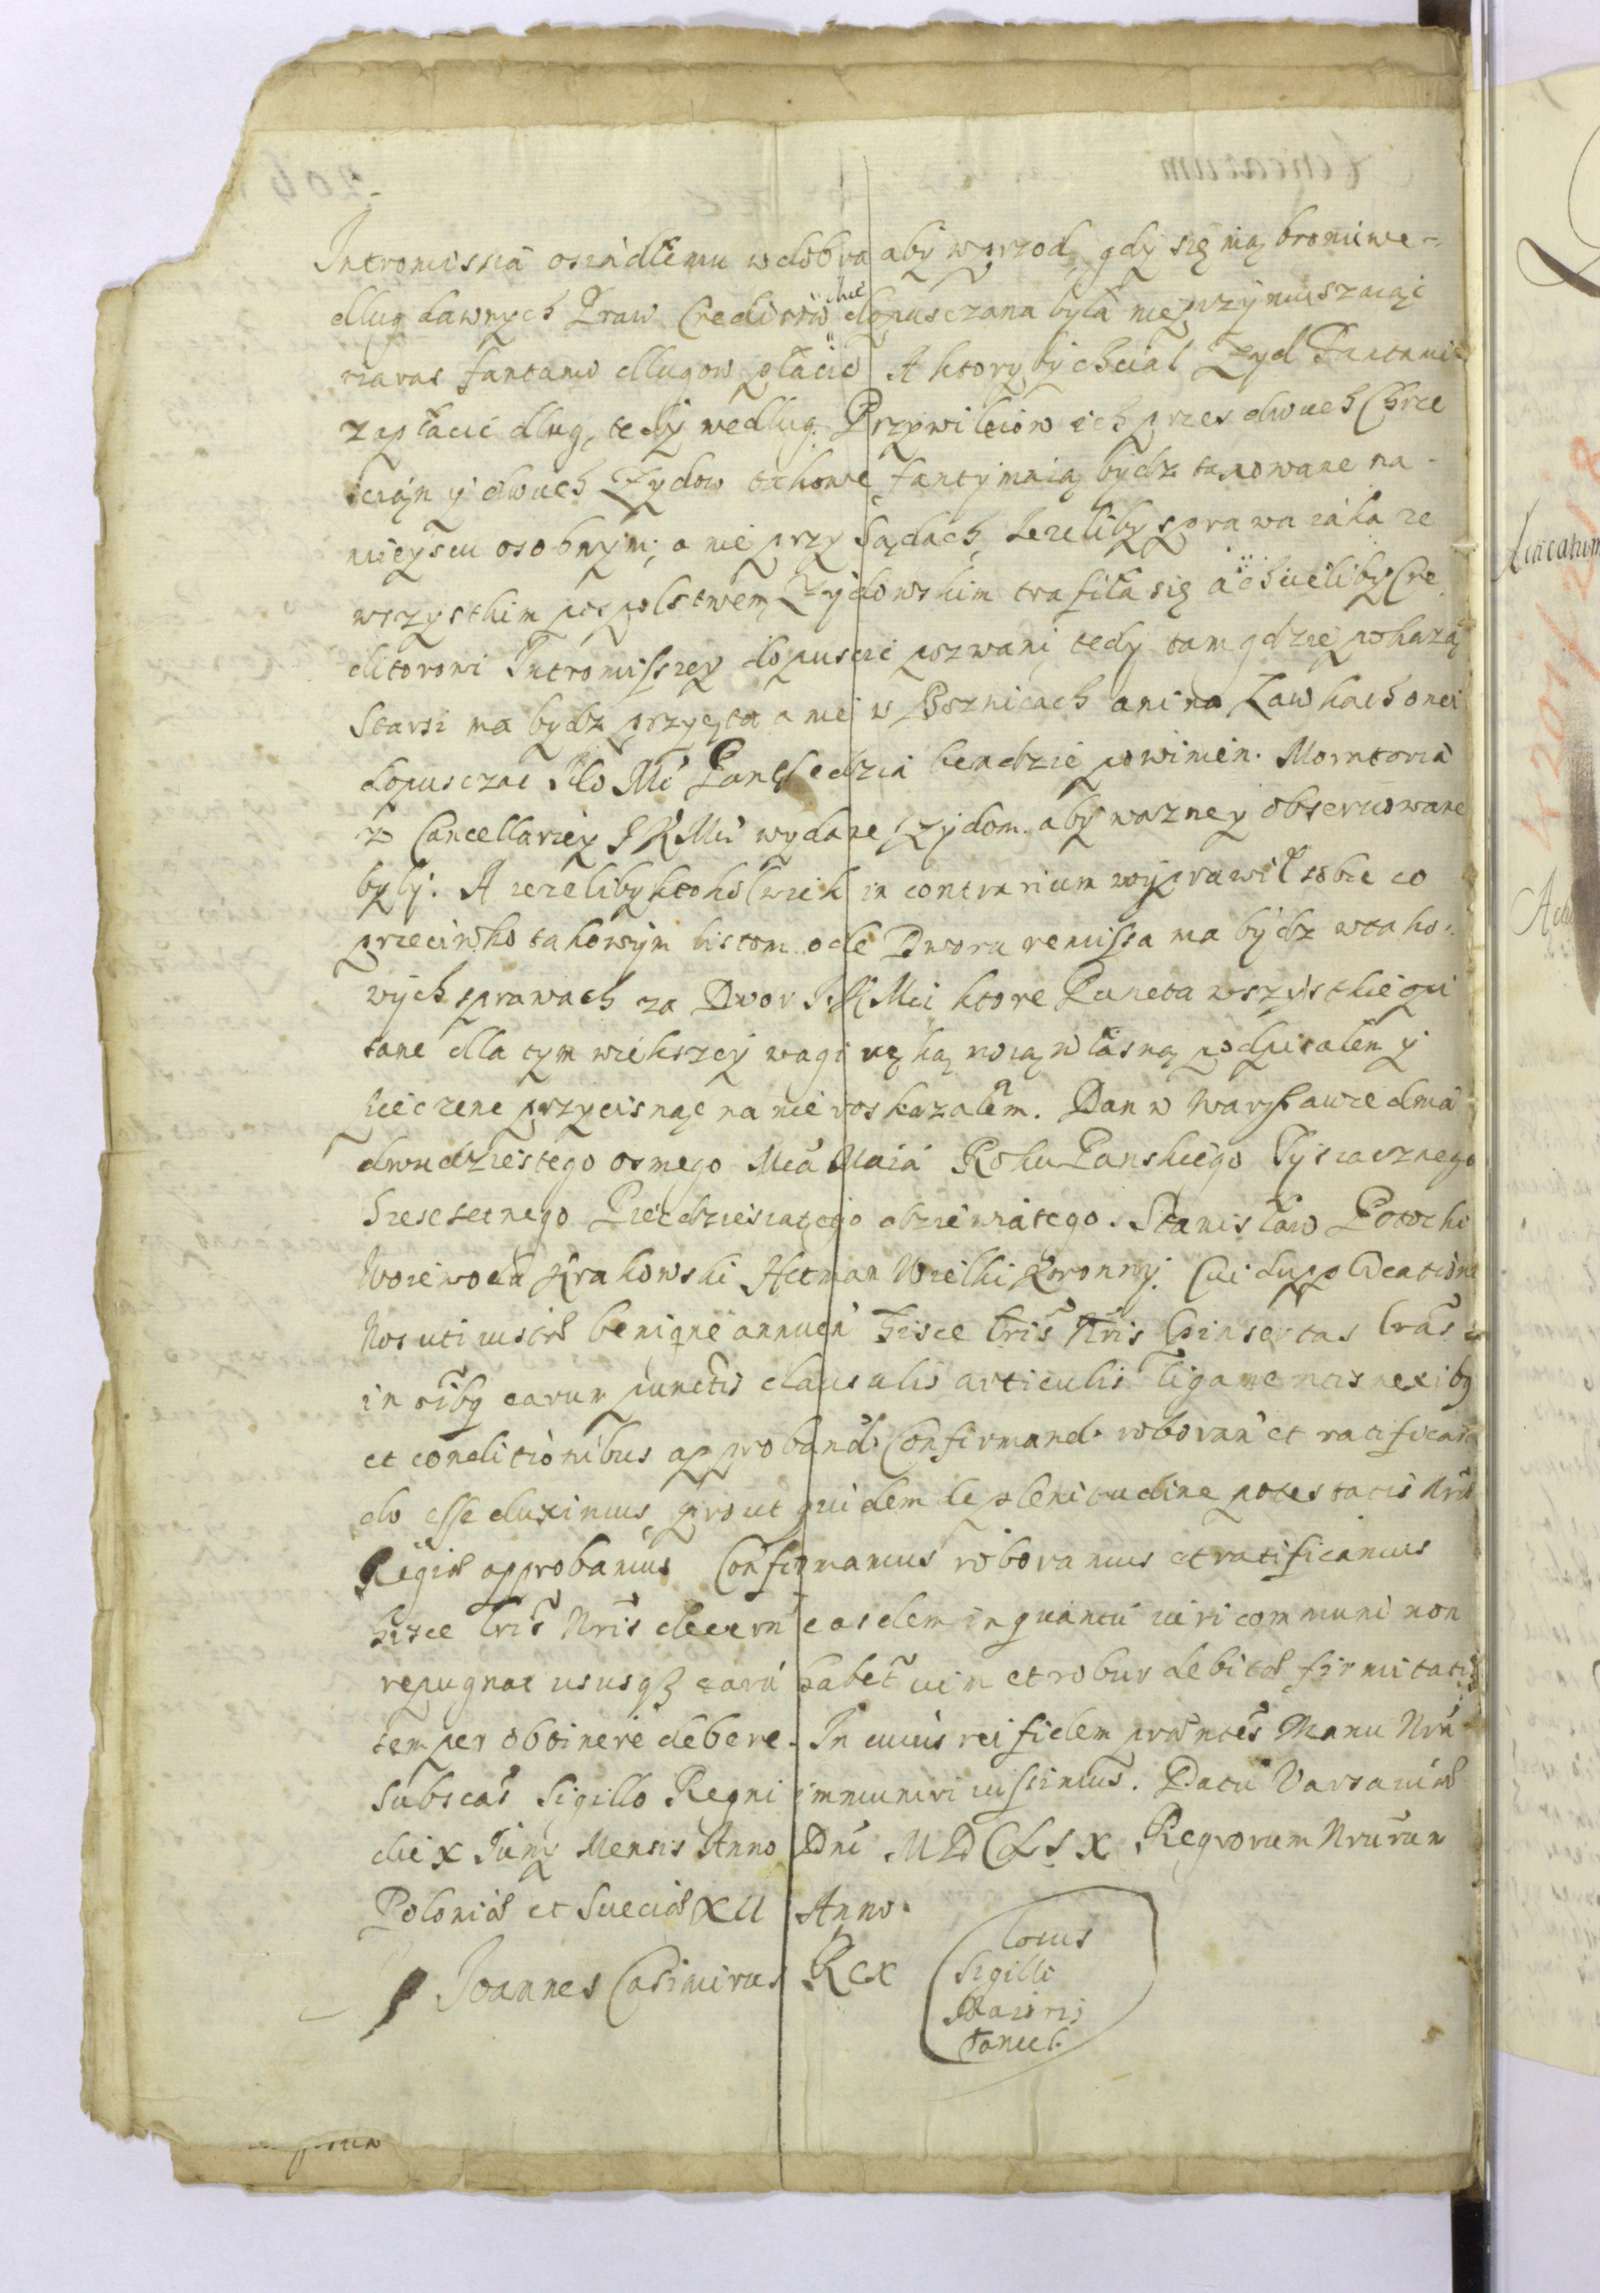 Intromissia osiádłemu w dobra aby wprzod, gdy się nią broni we-
dług dawnych Praw Creditorowi dopusczana była nieprzymuszaiąc
zaras fantami długow płacić A ktoryby chciał Zyd Fantami
zapłacić dług, tedy według Przywileiow ich przes dwuch Chrze
scián y dwuch Zydow takowe fanty maią bydz taxowane na
mieyscu osobnym, a nie przy Sądach, Jezeliby sprawa iáka ze
wszystkim pospolstwem Zydowskim trafiła się á chcieliby Cre
ditorowi Intromissiey dopuscić pozwani tedy tam gdzie pokazą
Starsi ma bydz przyięta a nie w Boznicach ani na Ławkach onei
dopusczac Jẽo Mć Pan Sedzia bendzie powinien. Moratoria
z Cancellariey J K Mći wydane Zydom aby wazne y obseruowane
były. A iezeliby ktokolwiek in contrarium wyprawił sobie co
przeciwko takowym listom ode Dwora remissa ma bydz w tako-
wych sprawach za Dwor J K Mći ktore Puncta wszystkie opi
sane dla tym wiekszey wagi ręką moią własną podpisałem y
Pieczenc przycisnąc na nie roskazałem. Dan w Warssawie dnia
dwudziestego osmego Mca Maiá Roku Panskiego Tysiacznego
Szescsetnego Piecdziesiątego dziewiatego. Stanisław Potocki
Woiewoda Krakowski Hetman Wielki Koronny. Cui Supplicationi
Nos uti iustæ benigne annuen̄ hisce lr̃is Nr̃is insertas lr̃as
in oĩbq earum punctis clausulis articulis ligamentis nexibq
et conditionibus approband. Confirmand. roboran̄ et ratificand
do esse duximus, prout quidem de plenitudine potestatis Nr̃æ
Regiæ approbamus Confirmamus roboramus et ratificamus
hisce lr̃is Nr̃is decern̄ easdem in quantũ iuri communi non
repugnat ususq3 earũ habet̃ vim et robur debitæ firmitatis
semper obtinere debere. In cuius rei fidem præntes Manu Nrã
Subscas Sigillo Regni immuniri iussimus. Datũ Varsauiæ
die X Iuny Mensis Anno Dnĩ MDCLIX Regnorum Nrõrum
Poloniæ et Sueciæ XII Anno.
Joannes Casimirus Rex
Locus
Sigilli
Maioris
Cancel.